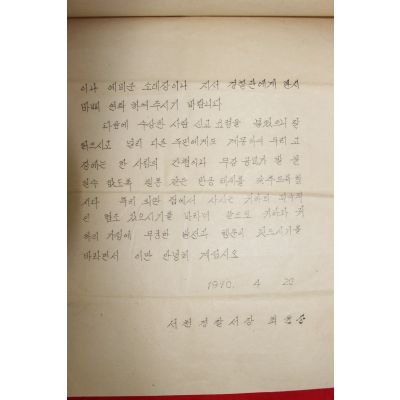 이나 예비군 소대장이나 지서 경찰관에게 즉시
바삐 연락 하여 주시기 바랍니다
다음에 수상한 사람 신고 요령을 보냈으니 잘
읽으시고 널리 다른 주민에게도 계몽하여 우리 고
장에는 한 사람의 간첩이나 무장 공비가 발 붙
일수 없도록 철통 같은 반공 태세를 갖추도록 합
시다 특히 외딴 집에서 사시는 귀하의 적극적
인 협조 있으시기를 바라며 앞으로 귀하와 귀
하의 가정에 무궁한 발전과 행운이 깃드시기를
바라면서 이만 안녕히 계십시오
1970. 4 20
서천경찰서장 최